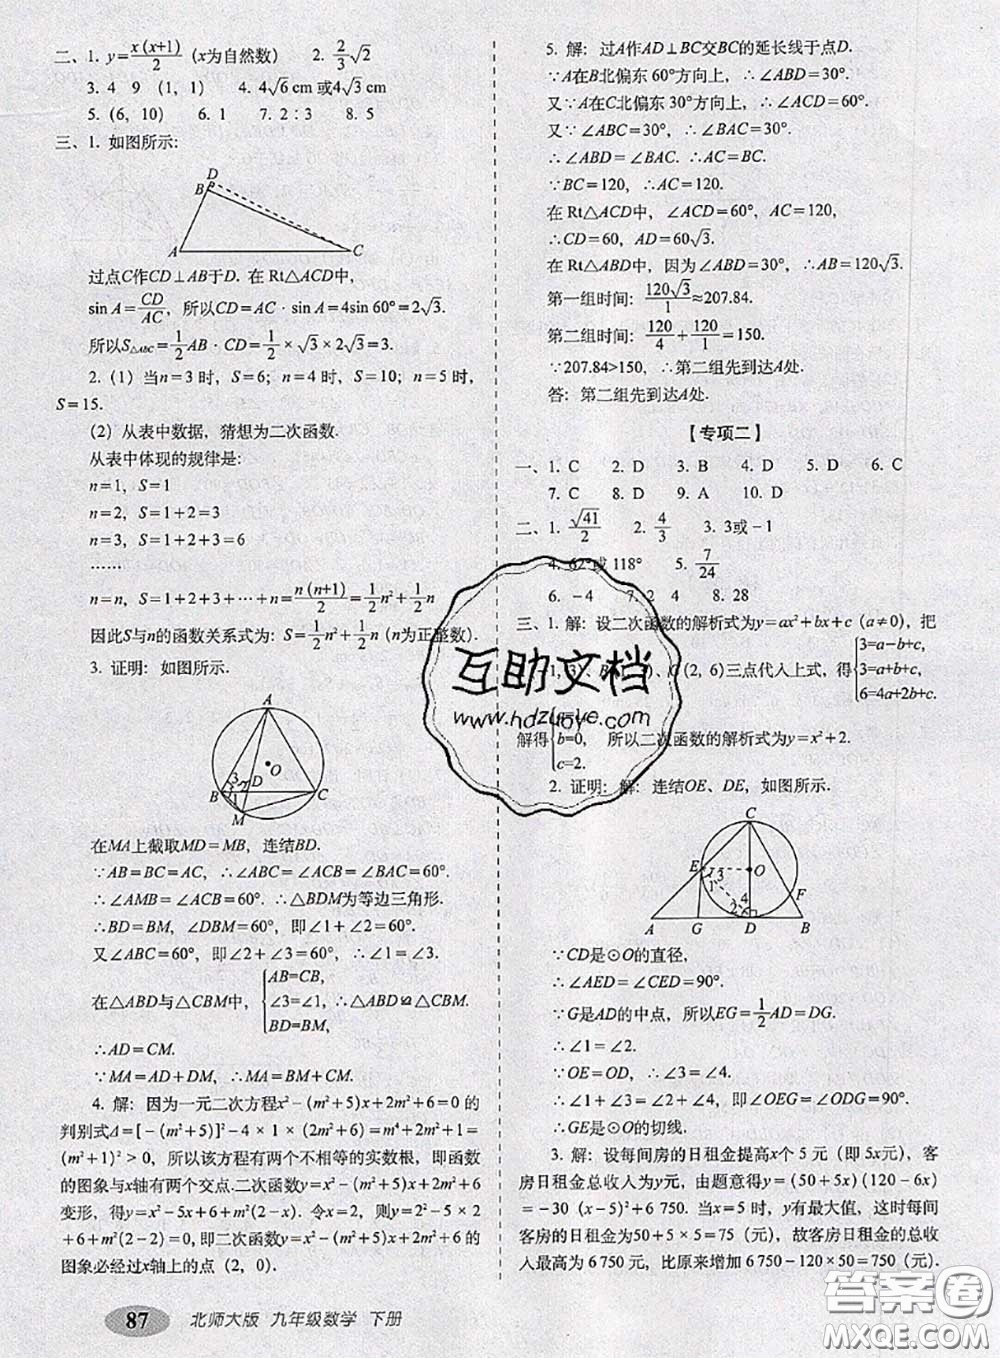 二、1. y=x(x+1)/2（x为自然数） 2. 2/3√2
3. 4 9 （1，1） 4. 4√6 cm 或4√3 cm
5.（6，10） 6. 1 7. 2∶3 8. 5
三、1. 如图所示:
D
B
A C
过点C作CD⊥AB于D. 在 Rt△ACD中，
sin A=CD/AC，所以CD=AC·sin A=4sin 60°=2√3.
所以S△ABC=1/2AB·CD=1/2×√3×2√3=3.
2.（1）当n=3 时，S=6；n=4 时，S=10；n=5 时，
S=15.
（2）从表中数据，猜想为二次函数.
从表中体现的规律是:
n=1，S=1
n=2，S=1+2=3
n=3，S=1+2+3=6
……
n=n，S=1+2+3+…+n=n(n+1)/2=1/2n²+1/2n
因此S与n的函数关系式为：S=1/2n²+1/2n（n为正整数）.
3. 证明：如图所示.
A
O
3 D
2
B 1 C
M
在MA上截取MD=MB，连结BD.
∵AB=BC=AC，∴∠ABC=∠ACB=∠BAC=60°.
∴∠AMB=∠ACB=60°. ∴△BDM为等边三角形.
∴BD=BM，∠DBM=60°，即∠1+∠2=60°.
又∠ABC=60°，即∠2+∠3=60°，∴∠1=∠3.
在△ABD与△CBM中，{AB=CB，∠3=∠1，BD=BM，∴△ABD≌△CBM.
∴AD=CM.
∵MA=AD+DM，∴MA=BM+CM.
4. 解：因为一元二次方程x²-(m²+5)x+2m²+6=0 的
判别式Δ=[-(m²+5)]²-4×1×(2m²+6)=m⁴+2m²+1=
(m²+1)²>0，所以该方程有两个不相等的实数根，即函数
的图象与x轴有两个交点.二次函数y=x²-(m²+5)x+2m²+6
变形，得y=x²-5x+6+m²(2-x). 令x=2，则y=2²-5×2
+6+m²(2-2)=0，即二次函数y=x²-(m²+5)x+2m²+6 的
图象必经过x轴上的点（2，0）.
87 北师大版 九年级数学 下册
5. 解：过A作AD⊥BC交BC的延长线于点D.
∵A在B北偏东 60°方向上，∴∠ABD=30°.
又∵A在C北偏东 30°方向上，∴∠ACD=60°.
又∵∠ABC=30°，∴∠BAC=30°.
∴∠ABD=∠BAC. ∴AC=BC.
∵BC=120，∴AC=120.
在 Rt△ACD中，∠ACD=60°，AC=120，
∴CD=60，AD=60√3.
在 Rt△ABD中，因为∠ABD=30°，∴AB=120√3.
第一组时间：120√3/1≈207.84.
第二组时间：120/4+120/1=150.
∵207.84>150，∴第二组先到达A处.
答：第二组先到达A处.
【专项二】
一、1. C 2. D 3. B 4. D 5. D 6. C
7. C 8. D 9. A 10. D
二、1. √41/2 2. 4/3 3. 3或-1
4. 62°或 118° 5. 7/24
6. -4 7. 2 4 8. 28
三、1. 解：设二次函数的解析式为y=ax²+bx+c（a≠0），把
(2，6)三点代入上式，得{3=a-b+c，3=a+b+c，6=4a+2b+c.
解得{b=0，c=2. 所以二次函数的解析式为y=x²+2.
2. 证明：解：连结OE、DE，如图所示.
C
E 3 O
1
4 F
2
A G D B
∵CD是⊙O的直径，
∴∠AED=∠CED=90°.
∵G是AD的中点，所以EG=1/2AD=DG.
∴∠1=∠2.
∵OE=OD，∴∠3=∠4.
∴∠1+∠3=∠2+∠4，即∠OEG=∠ODG=90°.
∴GE是⊙O的切线.
3. 解：设每间房的日租金提高x个 5 元（即 5x元），客
房日租金总收入为y元，由题意得y=（50+5x）（120-6x）
=-30（x-5)²+6 750. 当x=5 时，y有最大值，这时每间
客房的日租金为50+5×5=75（元），故客房日租金的总收
入最高为 6 750 元，比原来增加 6 750-120×50=750（元）.
互助文档
www.hdzuoye.com
答案圈
MXQE.COM